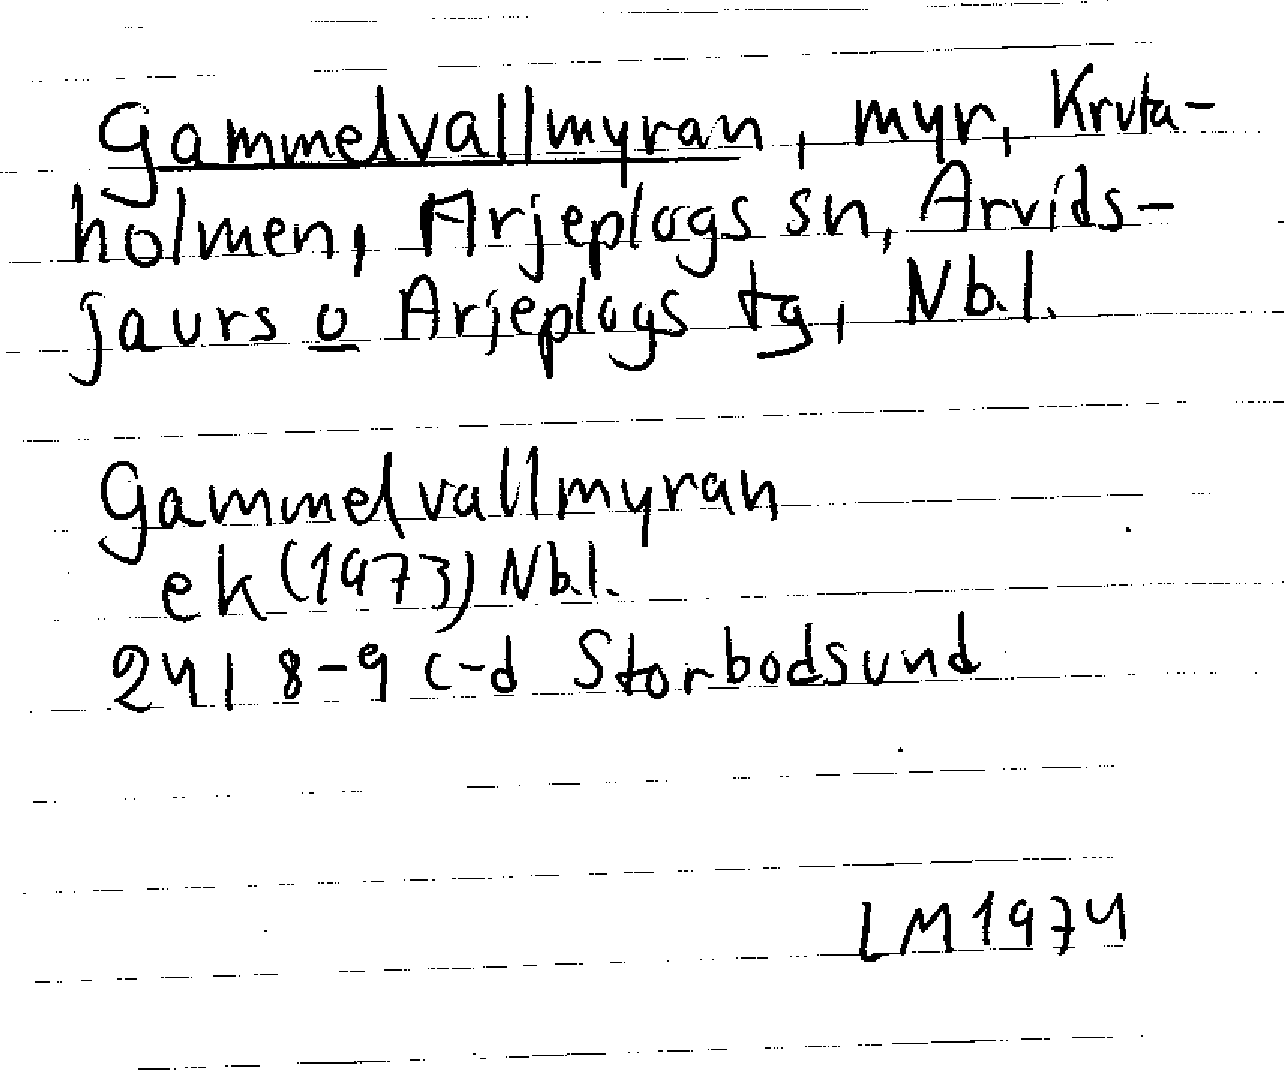 Gammelvallmyran, myr, Kruta-
holmen, Arjeplogs sn, Arvids-
jaurs o Arjeplogs tg, Nb.l.
Gammelvallmyran
ek (1973) Nb.l.
24 I 8-9 c-d Storbodsund
LM 1974